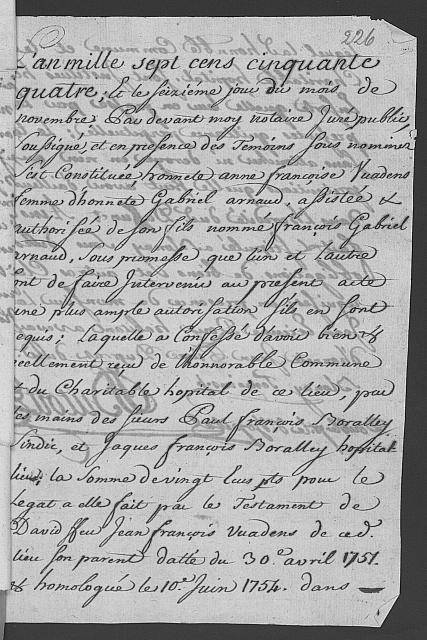 226
L'an mille sept cens cinquante
quatre, Et le seiziéme jour du mois de
novembre, Par devant moy notaire Juré public,
soussigné, et en presence des Temoins sous nommez
s'est Constituée honnete anne françoise Vuadens
femme d'honnété Gabriel arnaud, assistée &
authorisée de son fils nommé françois Gabriel
arnaud, sous promesse que l'un et L'autre
ont de faire Intervenir au present acte
une plus ample autorisation s'ils en sont
requis; Laquelle a Confessé d'avoir bien &
reellement reçu de l'honnorable Commune
et du Charitable hopital de ce lieu, par
les mains des sieurs Paul françois Boralley
sindic, et Jaques françois Boralley hopital
lier, la somme de vingt Ecus pts pour le
Legat a elle fait par le Testament de
David ffeu Jean françois Vuadens de ced.
lieu son parent datté du 30.e avril 1751.
& homologué le 10.e Juin 1754. dans